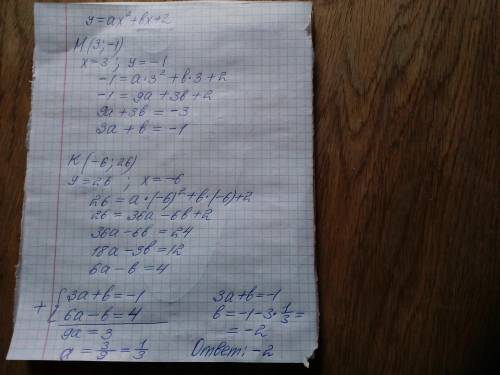 y=ax²+bx+2
M(3;-1)
x=3; y=-1
-1=a·3²+b·3+2
-1=9a+3b+2
9a+3b=-3
3a+b=-1
K(-6;26)
y=26; x=-6
26=a·(-6)²+b·(-6)+2
26=36a-6b+2
36a-6b=24
18a-3b=12
6a-b=4
+ { 3a+b=-1
6a-b=4
9a=3
a=3/9=1/3
3a+b=-1
b=-1-3·1/3=
=-2
Ответ: -2